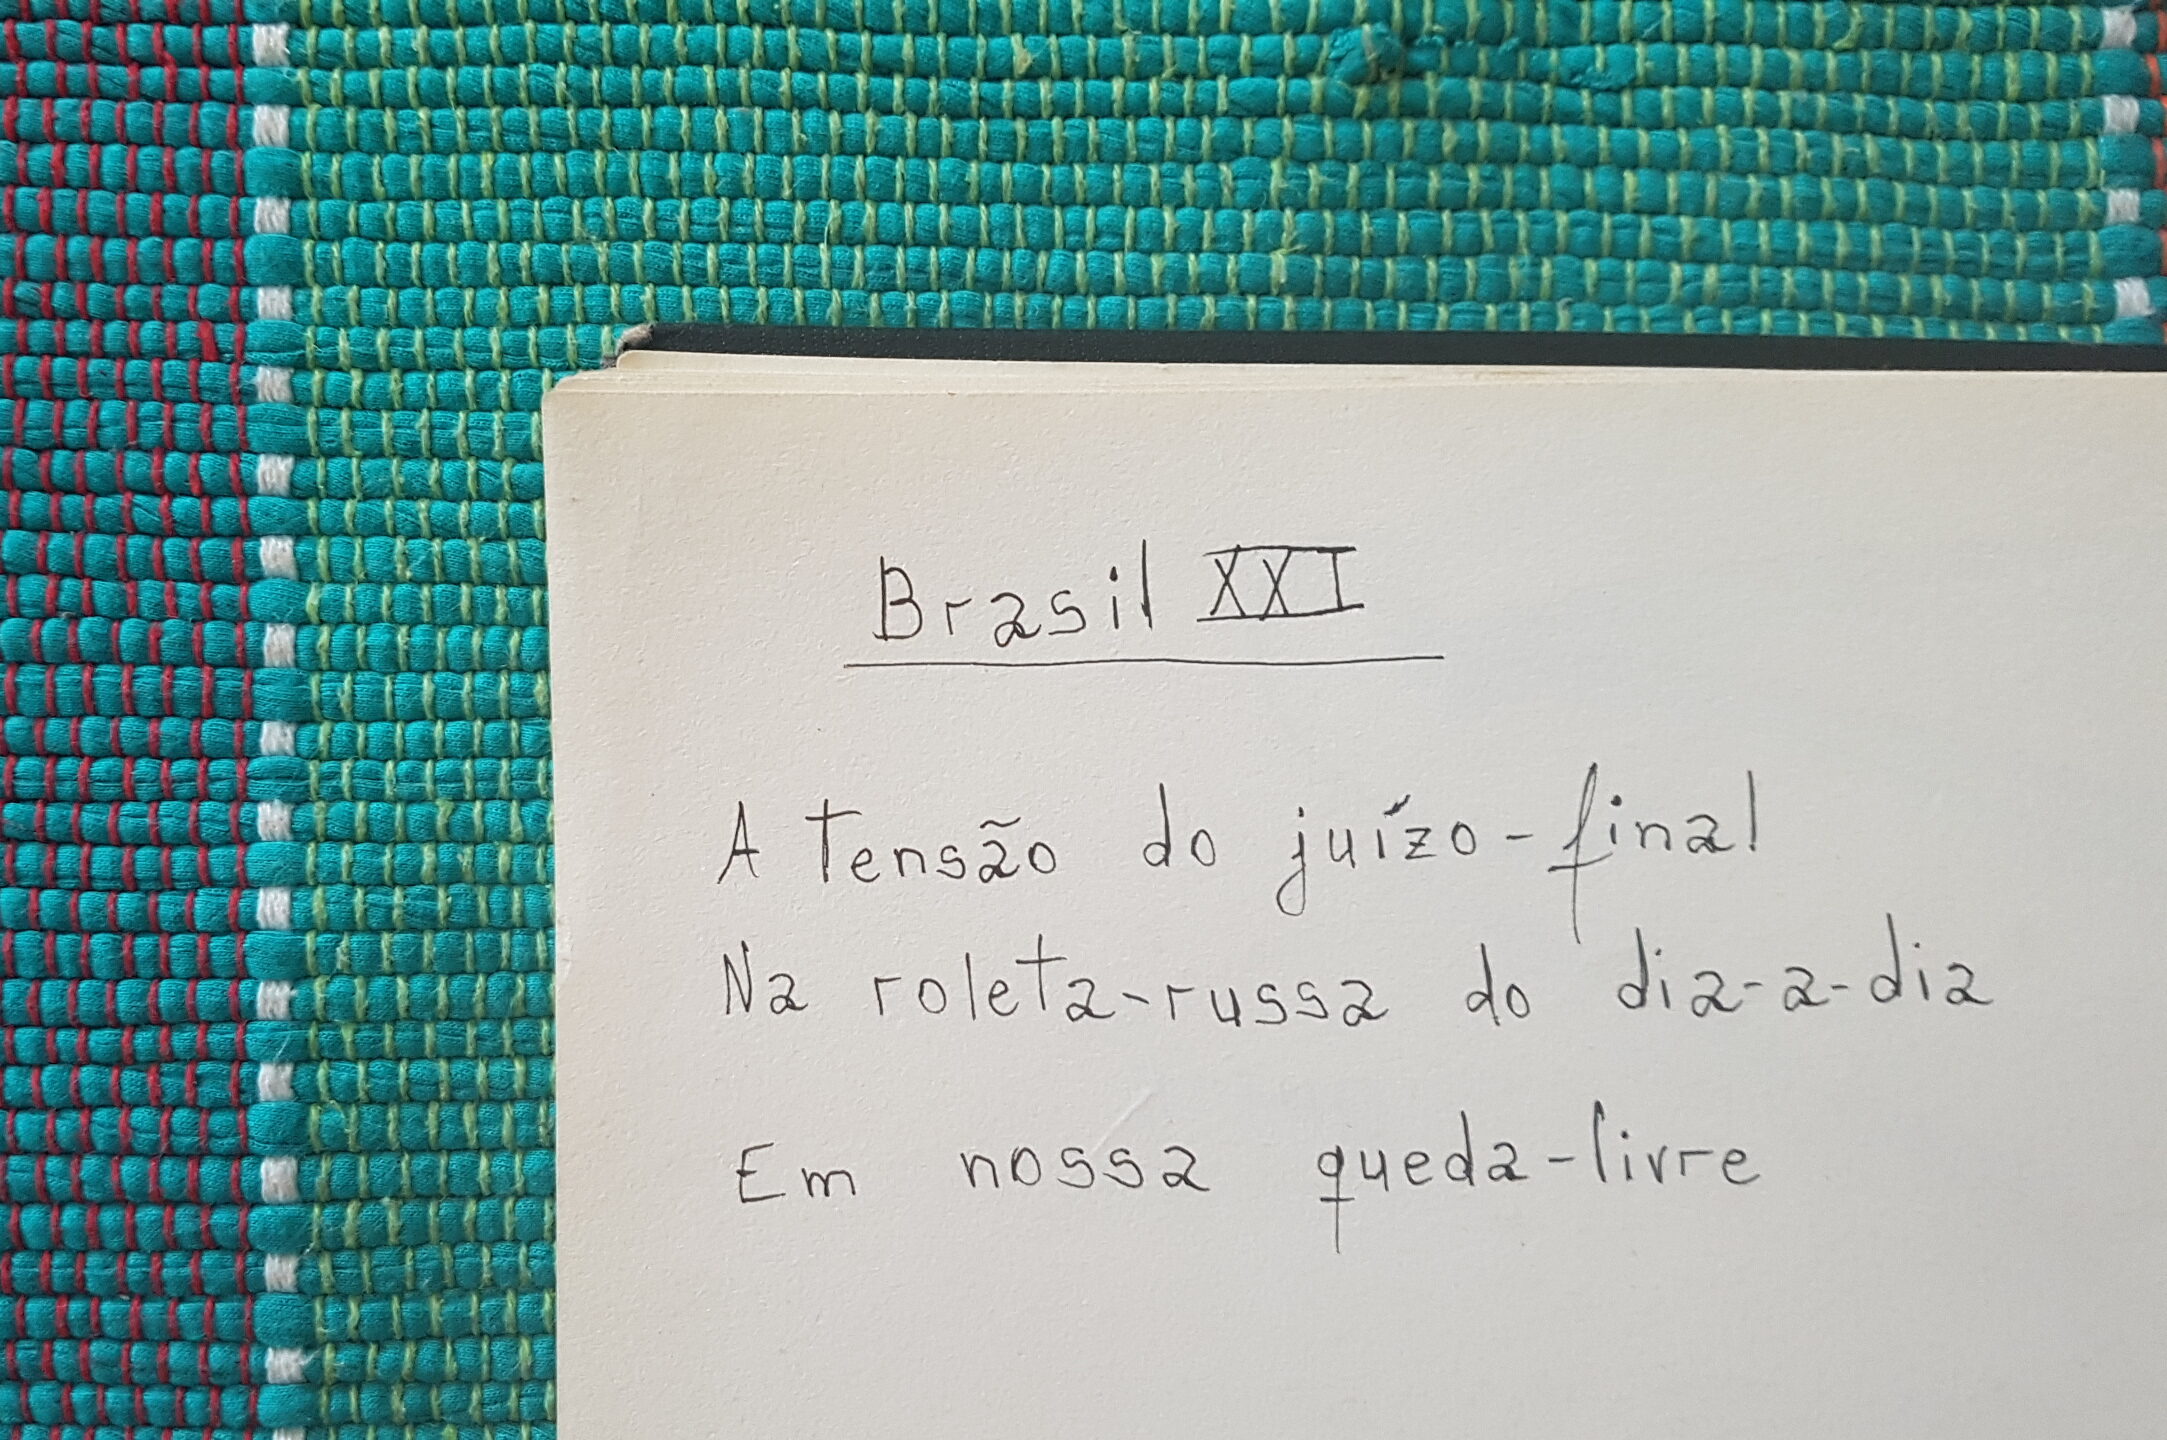 Brasil XXI
A tensão do juízo-final
Na roleta-russa do dia-a-dia
Em nossa queda-livre